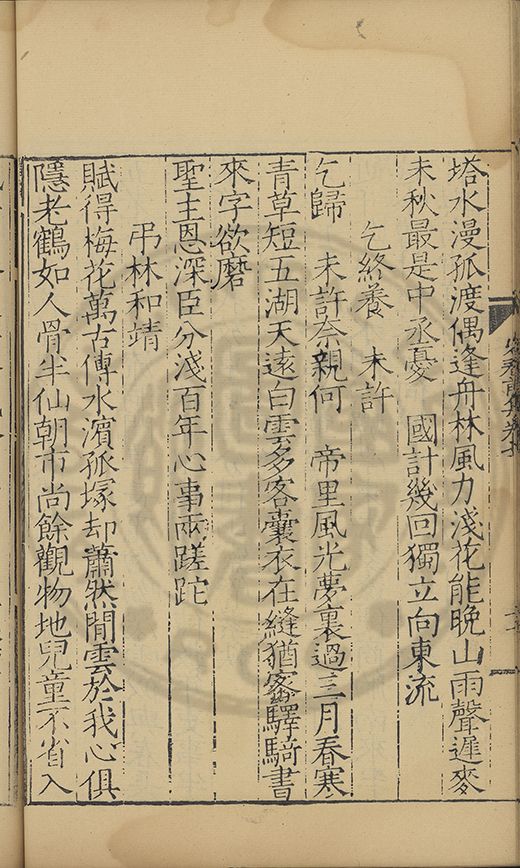 塔水漫孤渡偶逢舟林風力淺花能晚山雨聲遲麥
未秋最是中丞憂　國計幾回獨立向東流
乞終養　未許
乞歸　未許奈親何　帝里風光夢裏過三月看寒
青草短五湖天遠白雲多客囊衣在縫猶密驛騎書
來字欲磨
聖主恩深臣分淺百年心事兩蹉跎
弔林和靖
賦得梅花萬古傳水濱孤塚却蕭然閒雲於我心俱
隱老鶴如人骨半仙朝市尚餘觀物地兒童不省入